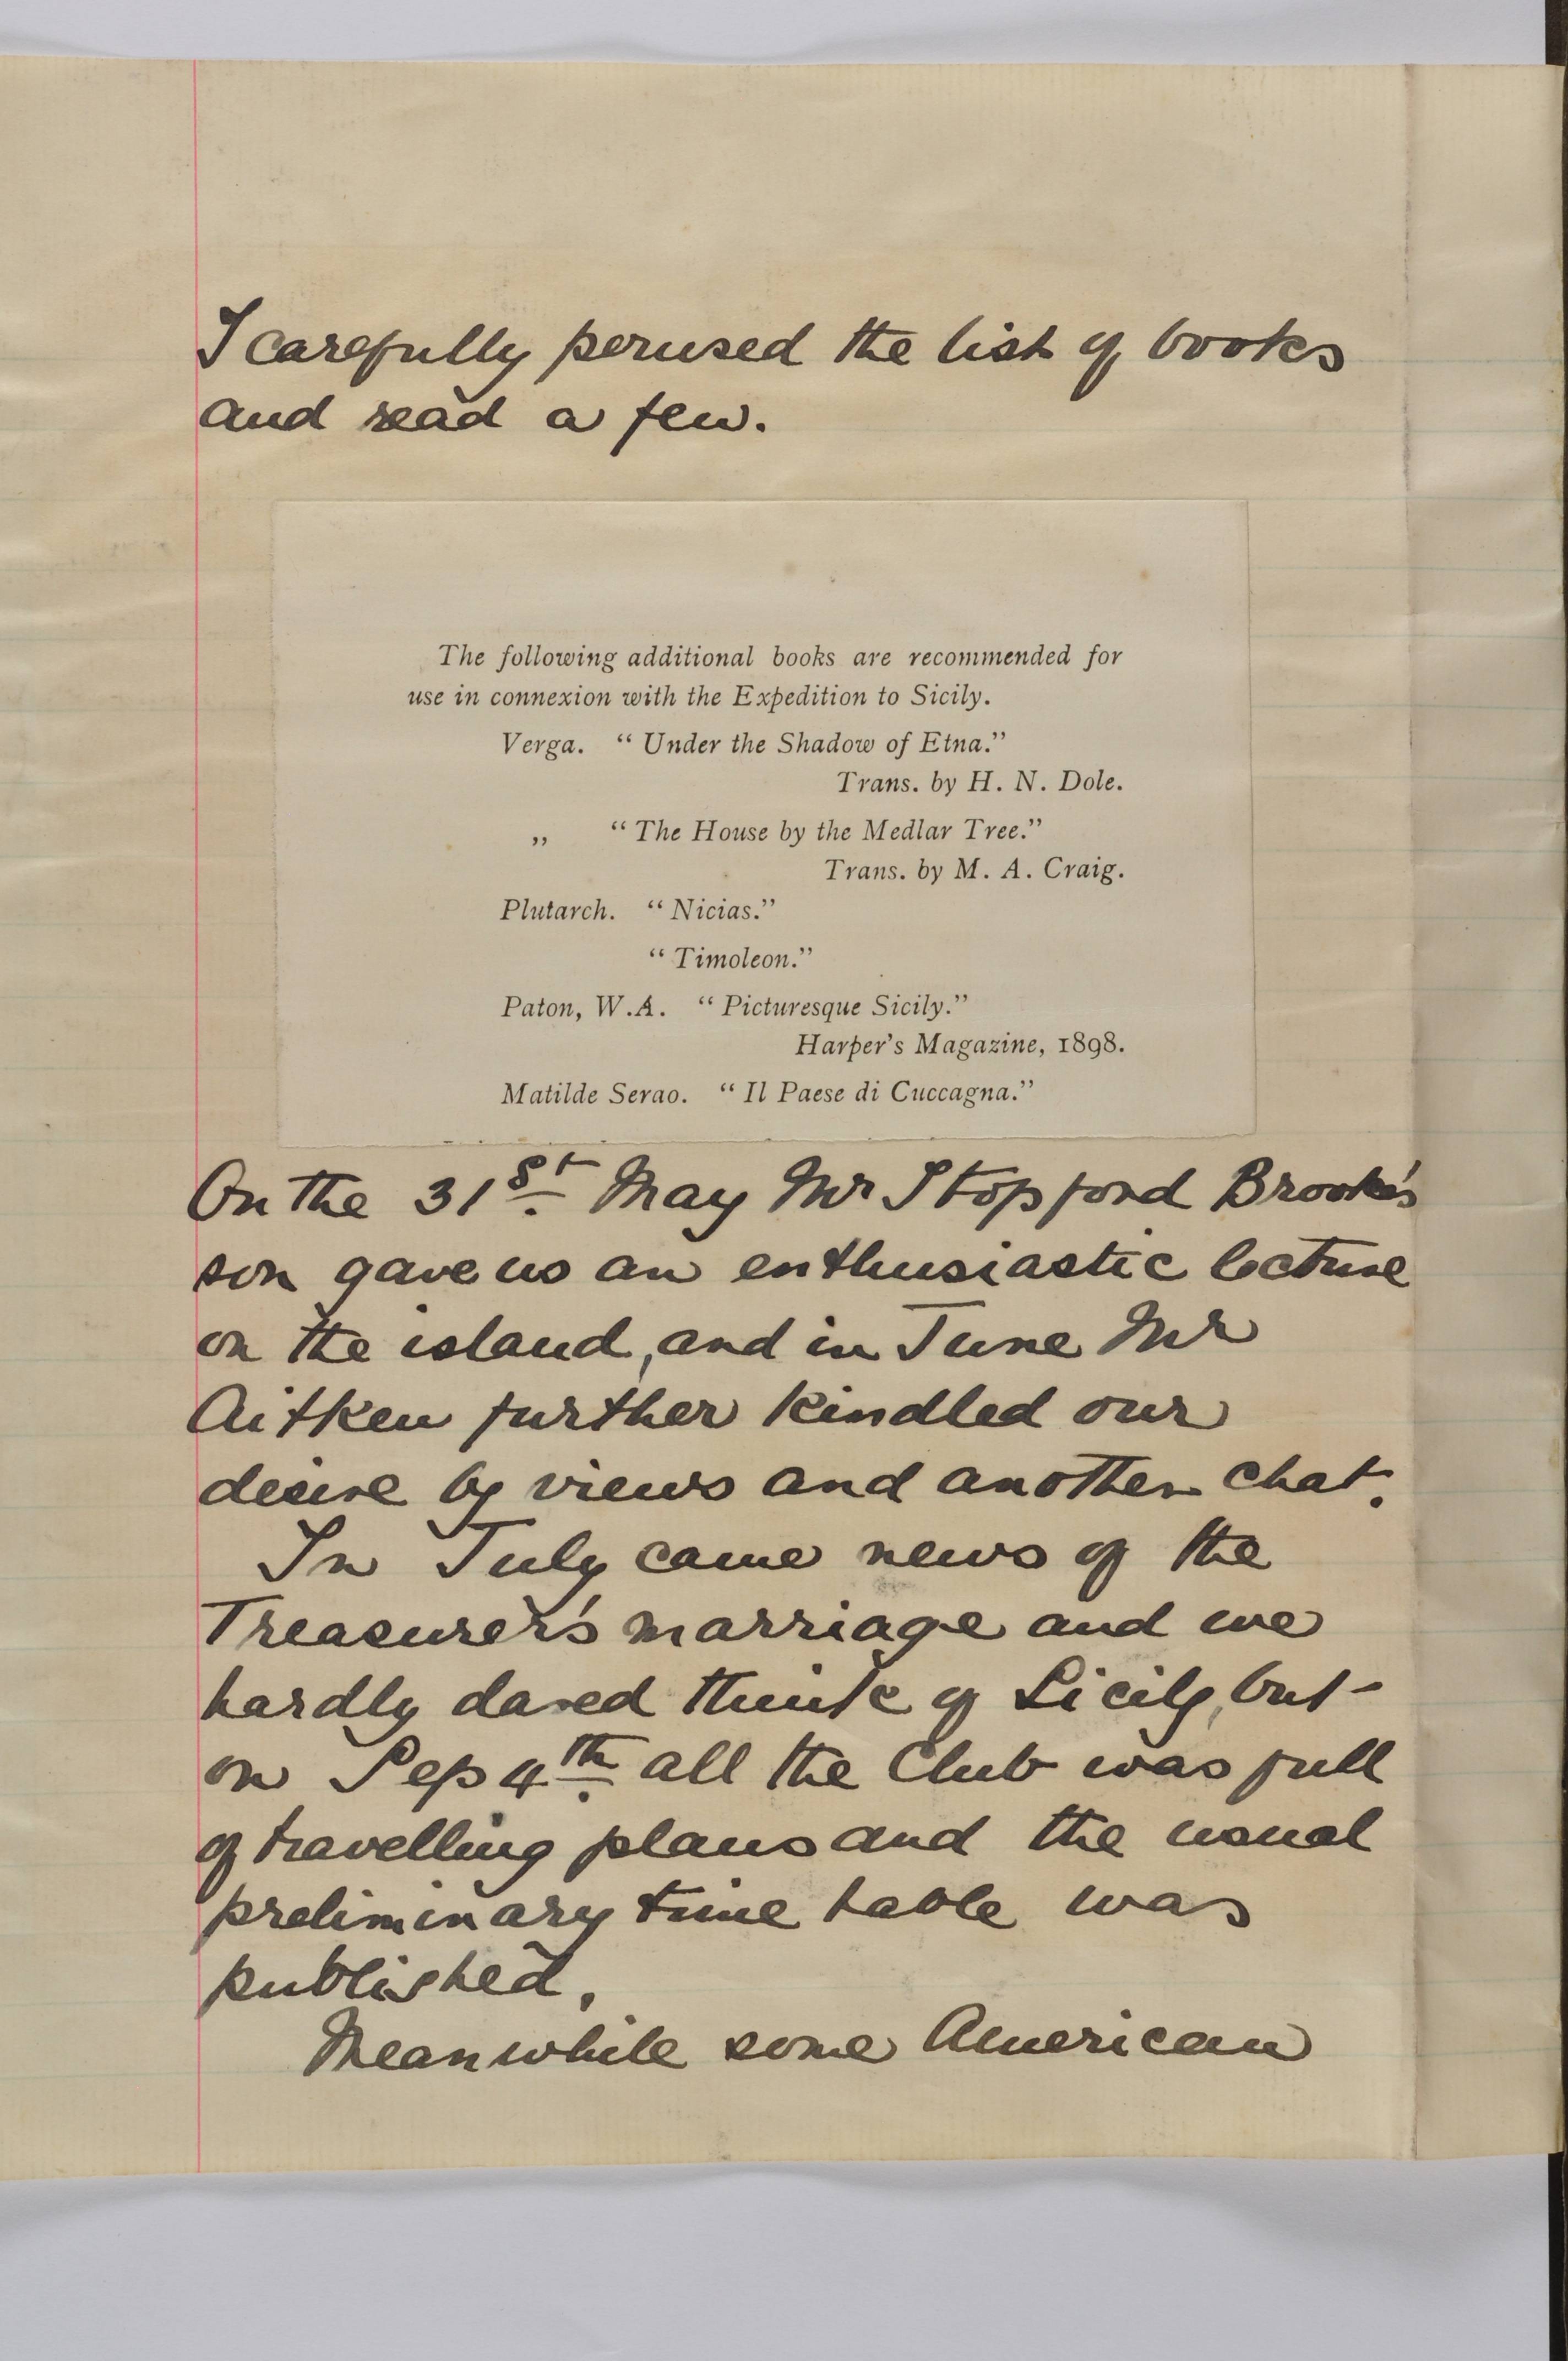 I carefully perused the list of books
and read a few.
The following additional books are recommended for
use in connexion with the Expedition to Sicily.
Verga. “Under the Shadow of Etna.”
Trans. by H. N. Dole.
„ “The House by the Medlar Tree.”
Trans. by M. A. Craig.
Plutarch. “Nicias.”
“Timoleon.”
Paton, W.A. “Picturesque Sicily.”
Harper’s Magazine, 1898.
Matilde Serao. “Il Paese di Cuccagna.”
On the 31st May Mr Stopford Brooke's
son gave us an enthusiastic lecture
on the island, and in June Mr
Aitken further kindled our
desire by views and another chat.
In July came news of the
Treasurer's marriage and we
hardly dared think of Sicily, but
on Sep 4th all the Club was full
of travelling plans and the usual
preliminary time table was
published.
Meanwhile some American